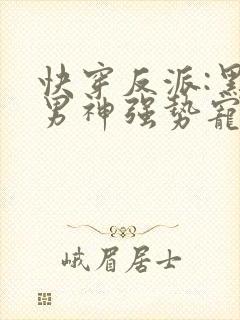 快穿反派:黑
男神强势寵
峨眉居士